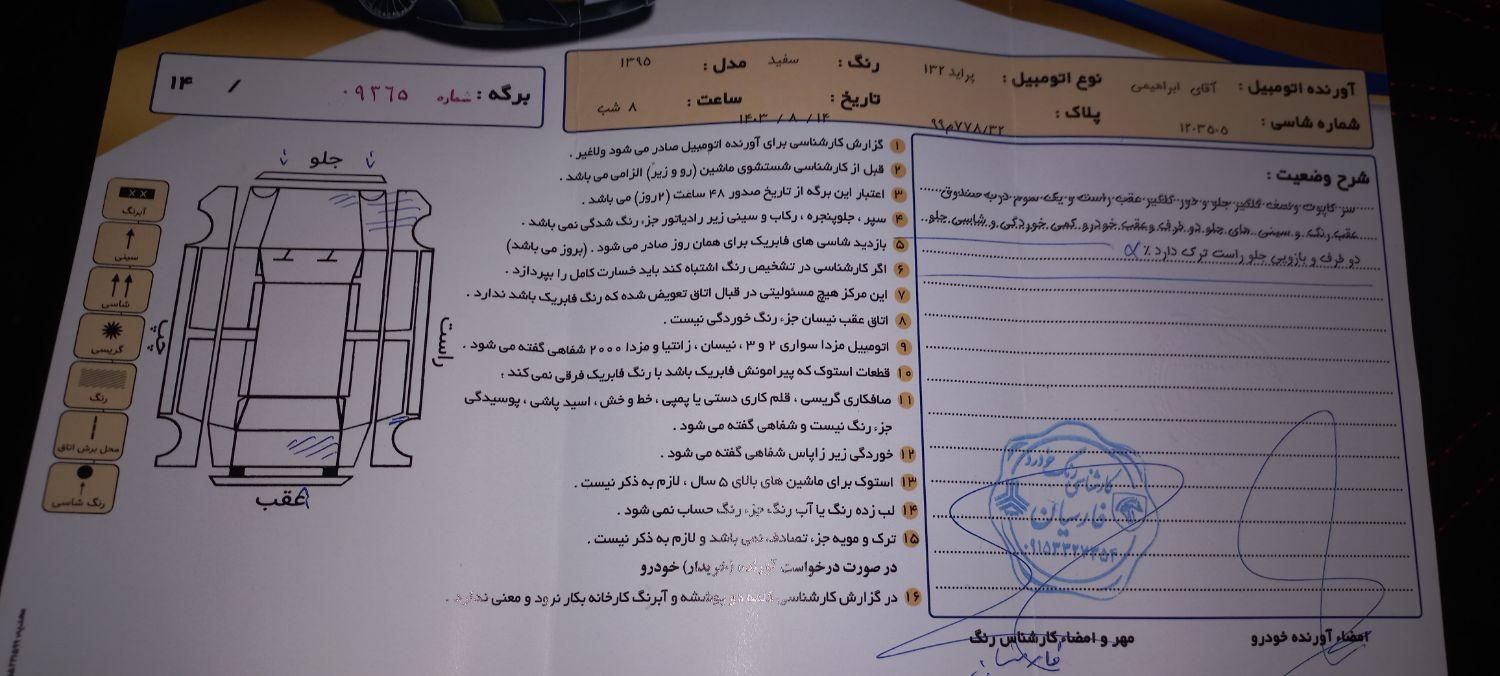 آورنده اتومبیل : آقای ابراهیمی نوع اتومبیل : پراید ۱۳۲ رنگ : سفید مدل : ۱۳۹۵
شماره شاسی : ۱۲۰۳۵۰۵ پلاک : ۹۹م۷۷۸/۳۲ تاریخ : ۱۴۰۳ / ۸ / ۱۴ ساعت : ۸ شب
برگه : شماره ۰۹۳۶۵ / ۱۴
شرح وضعیت :
سر کاپوت و نصف گلگیر جلو و دور گلگیر عقب راست و یک سوم درب صندوق
عقب رنگ و سینی های جلو دو طرف و عقب خودرو کمی خوردگی و شاسی جلو
دو طرف و بازویی جلو راست ترک دارد ٪
۱ گزارش کارشناسی برای آورنده اتومبیل صادر می شود ولاغیر .
۲ قبل از کارشناسی شستشوی ماشین (رو و زیر) الزامی می باشد .
۳ اعتبار این برگه از تاریخ صدور ۴۸ ساعت (۲روز) می باشد .
۴ سپر ، جلوپنجره ، رکاب و سینی زیر رادیاتور جزء رنگ شدگی نمی باشد .
۵ بازدید شاسی های فابریک برای همان روز صادر می شود . (بروز می باشد)
۶ اگر کارشناسی در تشخیص رنگ اشتباه کند باید خسارت کامل را بپردازد .
۷ این مرکز هیچ مسئولیتی در قبال اتاق تعویض شده که رنگ فابریک باشد ندارد .
۸ اتاق عقب نیسان جزء رنگ خوردگی نیست .
۹ اتومبیل مزدا سواری ۲ و ۳ ، نیسان ، زانتیا و مزدا ۲۰۰۰ شفاهی گفته می شود .
۱۰ قطعات استوک که پیرامونش فابریک باشد با رنگ فابریک فرقی نمی کند ؛
۱۱ صافکاری گریسی ، قلم کاری دستی یا پمپی ، خط و خش ، اسید پاشی ، پوسیدگی
جزء رنگ نیست و شفاهی گفته می شود .
۱۲ خوردگی زیر زاپاس شفاهی گفته می شود .
۱۳ استوک برای ماشین های بالای ۵ سال ، لازم به ذکر نیست .
۱۴ لب زده رنگ یا آب رنگ جزء رنگ حساب نمی شود .
۱۵ ترک و مویه جزء تصادف نمی باشد و لازم به ذکر نیست .
در صورت درخواست آورنده (خریدار) خودرو
۱۶ در گزارش کارشناسی کلمه دو پوششه و آبرنگ کارخانه بکار نرود و معنی ندارد .
جلو
راست
چپ
عقب
آبرنگ
سینی
شاسی
گریسی
رنگ
محل برش اتاق
رنگ شاسی
کارشناسی رنگ خودرو
فارسیان
۰۹۱۵۳۳۲۷۴۵۴
امضاء آورنده خودرو
مهر و امضاء کارشناس رنگ